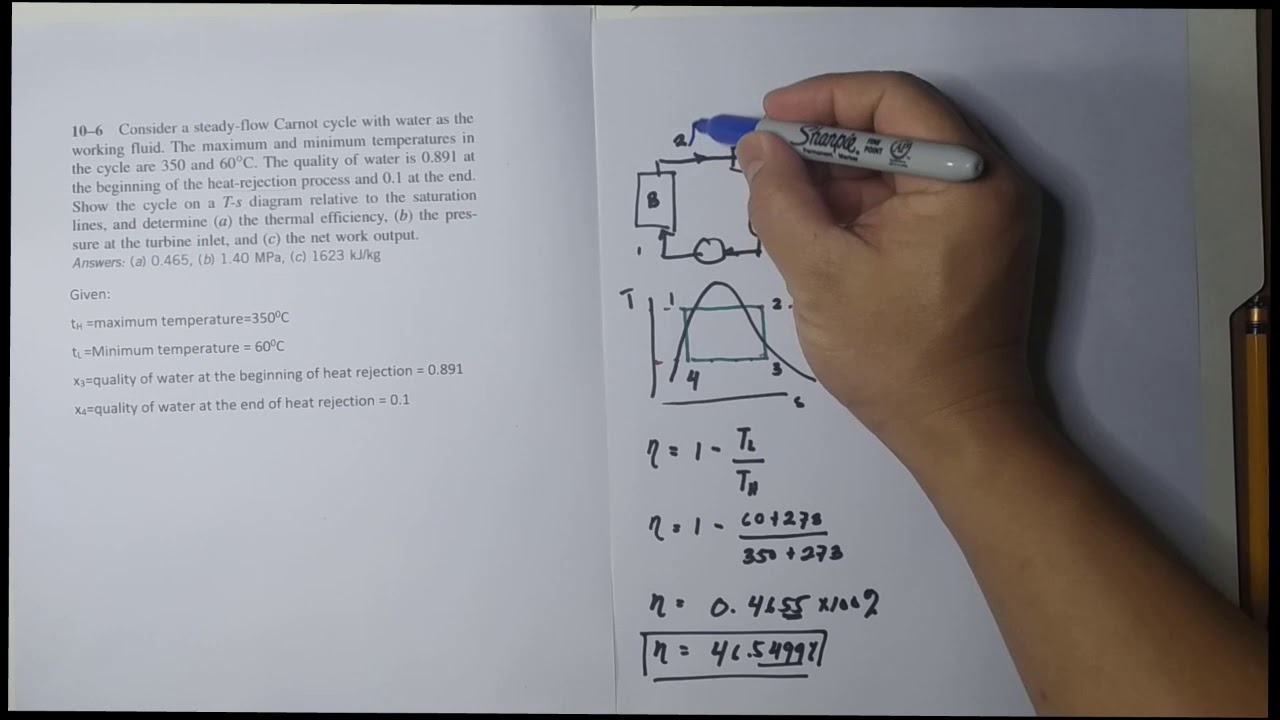 10–6 Consider a steady-flow Carnot cycle with water as the
working fluid. The maximum and minimum temperatures in
the cycle are 350 and 60°C. The quality of water is 0.891 at
the beginning of the heat-rejection process and 0.1 at the end.
Show the cycle on a T-s diagram relative to the saturation
lines, and determine (a) the thermal efficiency, (b) the pres-
sure at the turbine inlet, and (c) the net work output.
Answers: (a) 0.465, (b) 1.40 MPa, (c) 1623 kJ/kg
Given:
tH =maximum temperature=350⁰C
tL =Minimum temperature = 60⁰C
x3=quality of water at the beginning of heat rejection = 0.891
x4=quality of water at the end of heat rejection = 0.1
Sharpie
FINE POINT
AP
Permanent Marker
2
B
1
T
1
2
4
3
s
η = 1 - TL/TH
η = 1 - 60+273/350+273
η = 0.4655 x100%
η = 46.5499%